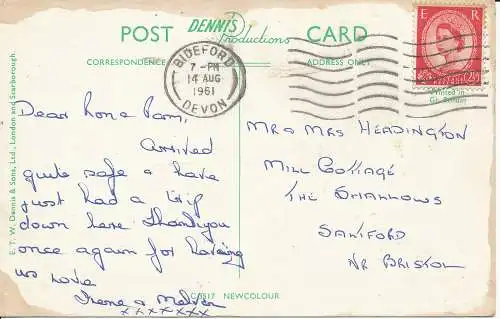 POST DENNIS Productions CARD
CORRESPONDENCE
ADDRESS ONLY
BIDEFORD
7 - PM
14 AUG
1961
DEVON
E R
POSTAGE
2½D
Printed in
Gt. Britain
E. T. W. Dennis & Sons, Ltd., London and Scarborough.
Dear Ron & Pam,
Arrived
quite safe & have
just had a trip
down here Thankyou
once again for having
us Love
Irene & Melvin
xxxxxxx
MR & MRS HEADINGTON
MILL COTTAGE
THE SHALLOWS
SALTFORD
NR BRISTOL
NEWCOLOUR